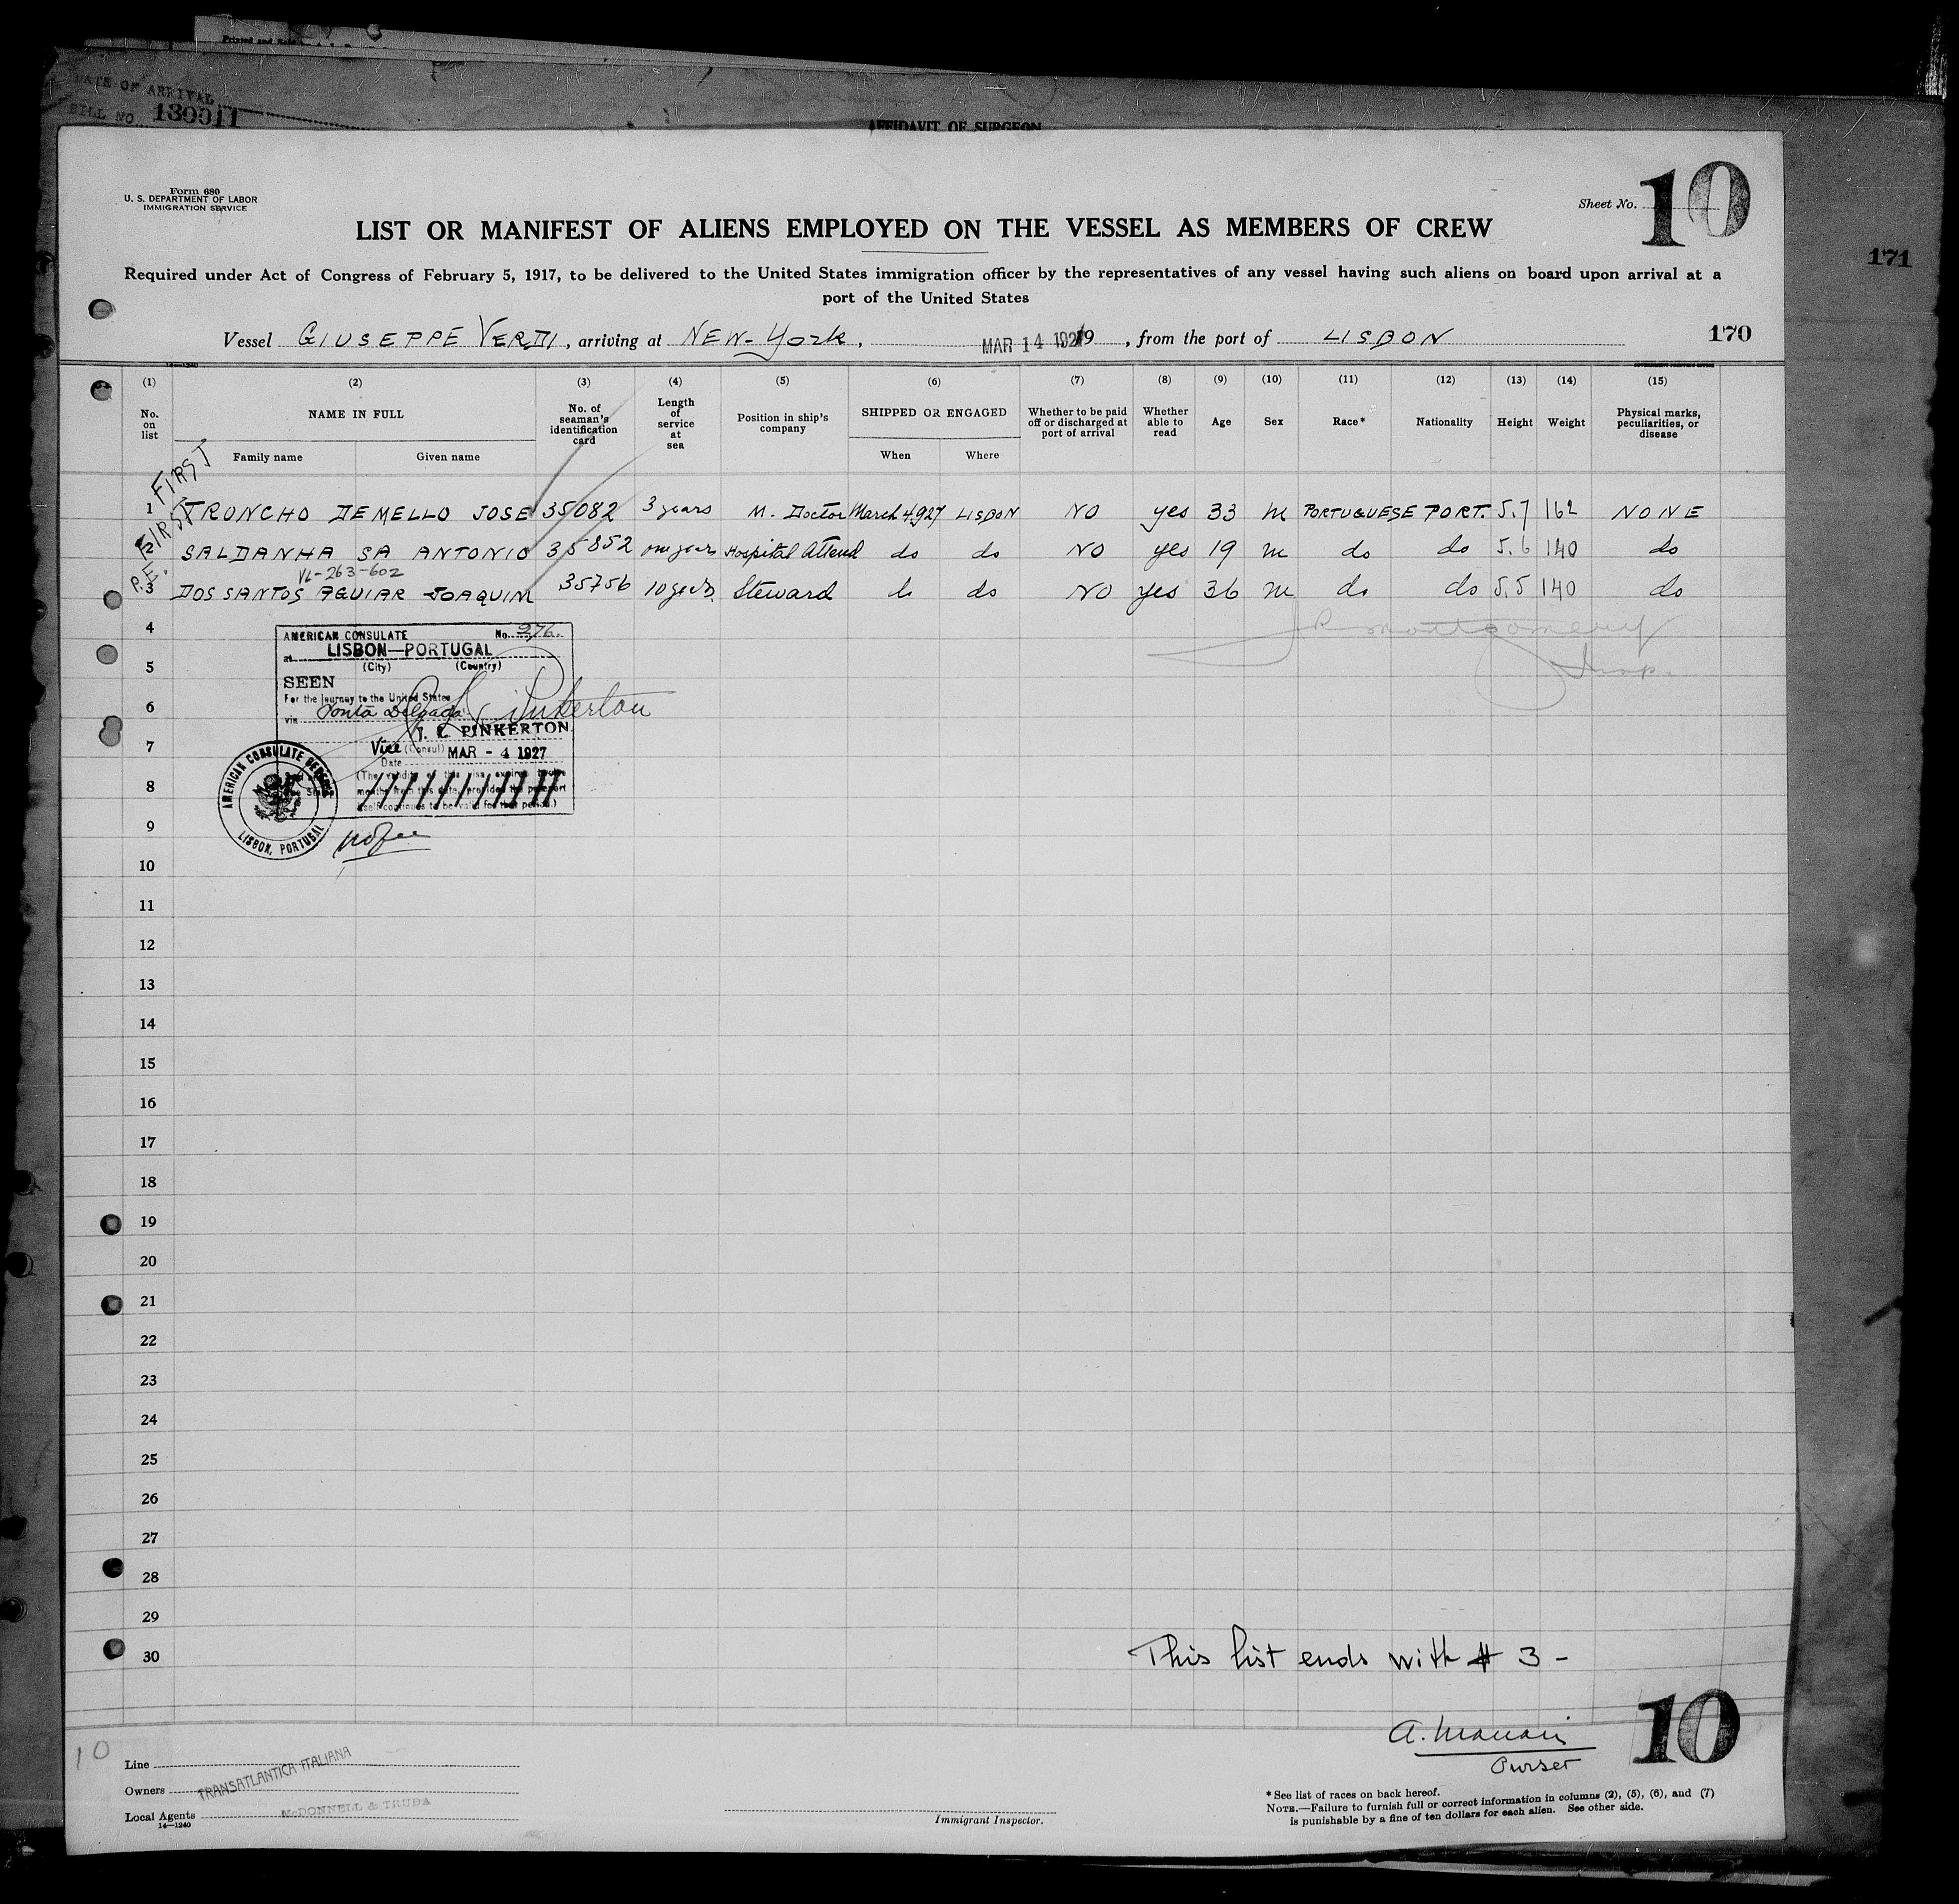 DATE OF ARRIVAL
BILL NO. 130011
AFFIDAVIT OF SURGEON
Form 680
U. S. DEPARTMENT OF LABOR
IMMIGRATION SERVICE
Sheet No. 10
LIST OR MANIFEST OF ALIENS EMPLOYED ON THE VESSEL AS MEMBERS OF CREW
171
Required under Act of Congress of February 5, 1917, to be delivered to the United States immigration officer by the representatives of any vessel having such aliens on board upon arrival at a
port of the United States
Vessel GIUSEPPE VERDI, arriving at NEW-York, MAR 14 1927 19 , from the port of LISBON
170
(1) (2) (3) (4) (5) (6) (7) (8) (9) (10) (11) (12) (13) (14) (15)
No. on list NAME IN FULL No. of seaman's identification card Length of service at sea Position in ship's company SHIPPED OR ENGAGED Whether to be paid off or discharged at port of arrival Whether able to read Age Sex Race* Nationality Height Weight Physical marks, peculiarities, or disease
Family name Given name When Where
FIRST
1 TRONCHO DEMELLO JOSE 35082 3 years M. Doctor March 4.927 LISBON NO yes 33 m PORTUGUESE PORT. 5.7 162 NONE
FIRST
2 SALDANHA SA ANTONIO 35852 one years Hospital Attend do do NO yes 19 m do do 5.6 140 do
P.E. VL-263-602
3 DOS SANTOS AGUIAR JOAQUIM 35756 10 years. Steward do do NO yes 36 m do do 5.5 140 do
JR Montgomery
Insp.
4
5
6
7
8
9
10
11
12
13
14
15
16
17
18
19
20
21
22
23
24
25
26
27
28
29
30
AMERICAN CONSULATE No. 276.
at LISBON—PORTUGAL
(City) (Country)
SEEN
For the journey to the United States
via Ponta Delgada
Pinkerton
PINKERTON
Vice (Consul)
Date MAR - 4 1927
(The validity of this visa expires
months from this date, provided the passport
itself continues to be valid for that period.)
AMERICAN CONSULATE GENERAL
LISBON, PORTUGAL
no fee
This list ends with # 3 -
10
Purser
10
Line
Owners TRANSATLANTICA ITALIANA
Local Agents McDONNELL & TRUDA
14—1240
Immigrant Inspector.
* See list of races on back hereof.
NOTE.—Failure to furnish full or correct information in columns (2), (5), (6), and (7)
is punishable by a fine of ten dollars for each alien. See other side.